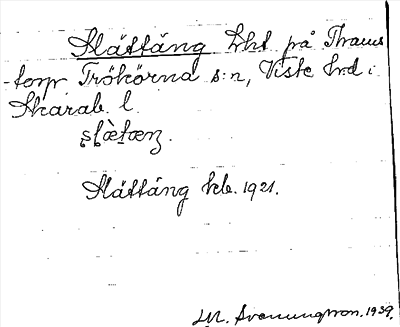 Slättäng Lht på Thams
-torp Trökörna s:n, Viste hd i
Skarab. l.
Slättäng kb. 1921.
M. Svenungsson. 1939.